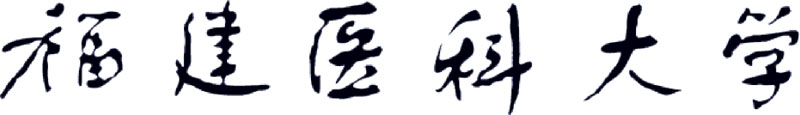 福建医科大学